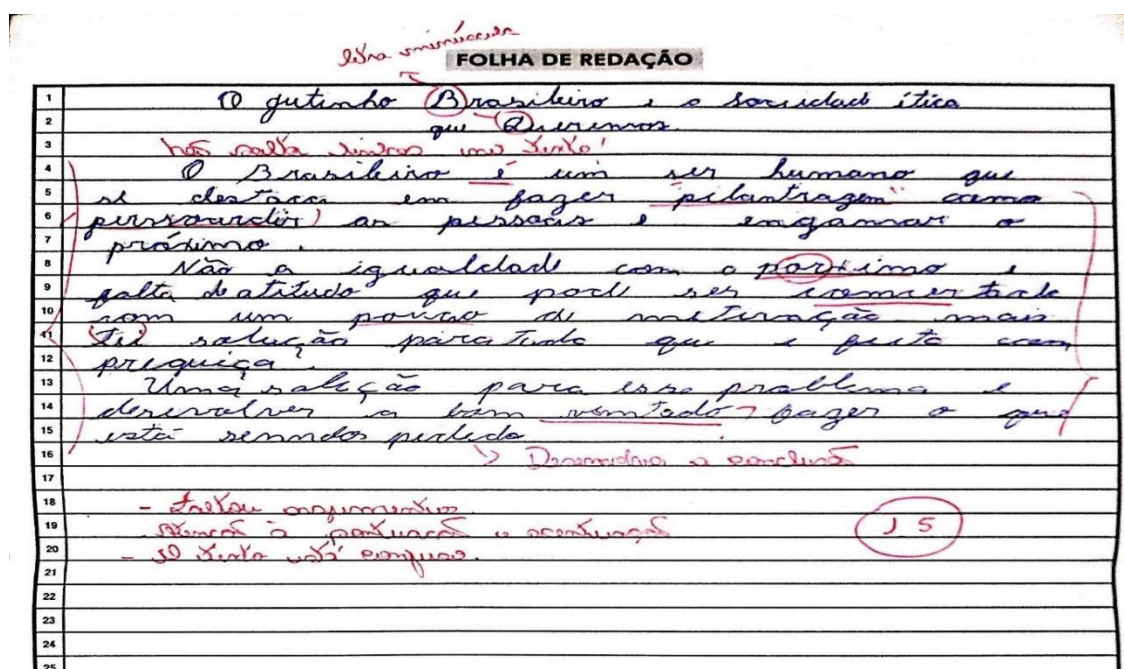 letra minúscula
FOLHA DE REDAÇÃO
1 O jutinho Brasileiro e a sociedade ética
2 que Queremos.
3 Não salta linhas no texto!
4 O Brasileiro é um ser humano que
5 se destaca em fazer "pilantragem" como
6 perssourdir as pessoas e enganar o
7 próximo.
8 Não a igualdade com o porximo e
9 falta de atitude que pode ser comcertada
10 com um pouco de meturação mais
11 Tei solução para tudo que e feito com
12 preguiça.
13 Uma solução para esse problema e
14 desenvolver a bom vontade, fazer o que
15 está senndos pedido
16 Desenvolva a conclusão
17
18 - Faltou argumentos
19 - Atenção à pontuação e acentuação
20 - O texto está confuso.
15
21
22
23
24
25